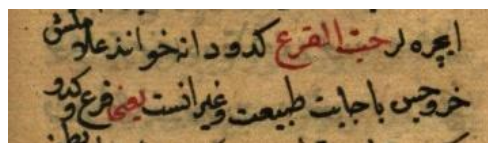 حب القرع کدو دانه خوانند علامتش
خروجش باجابت طبیعت و غیر آنست یعنی قرع کدو